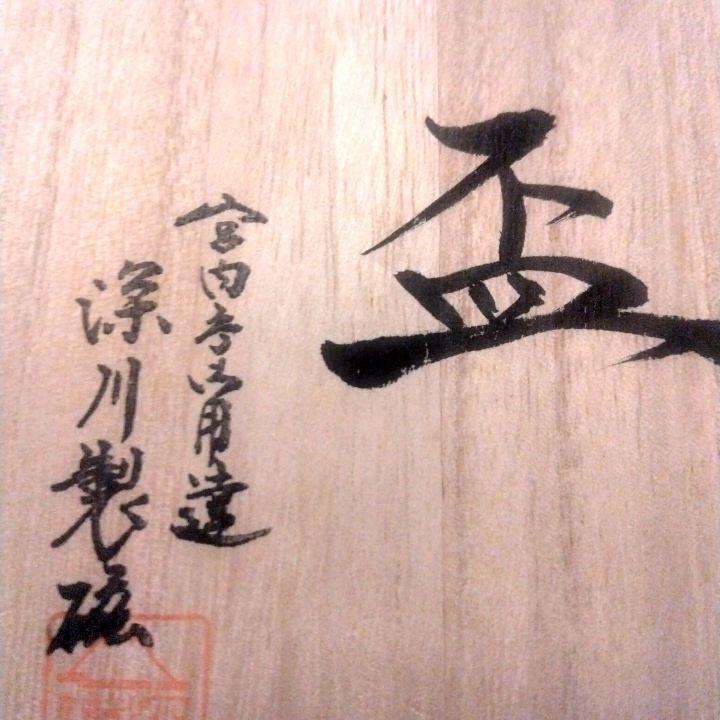 盃
宮内庁御用達
深川製磁